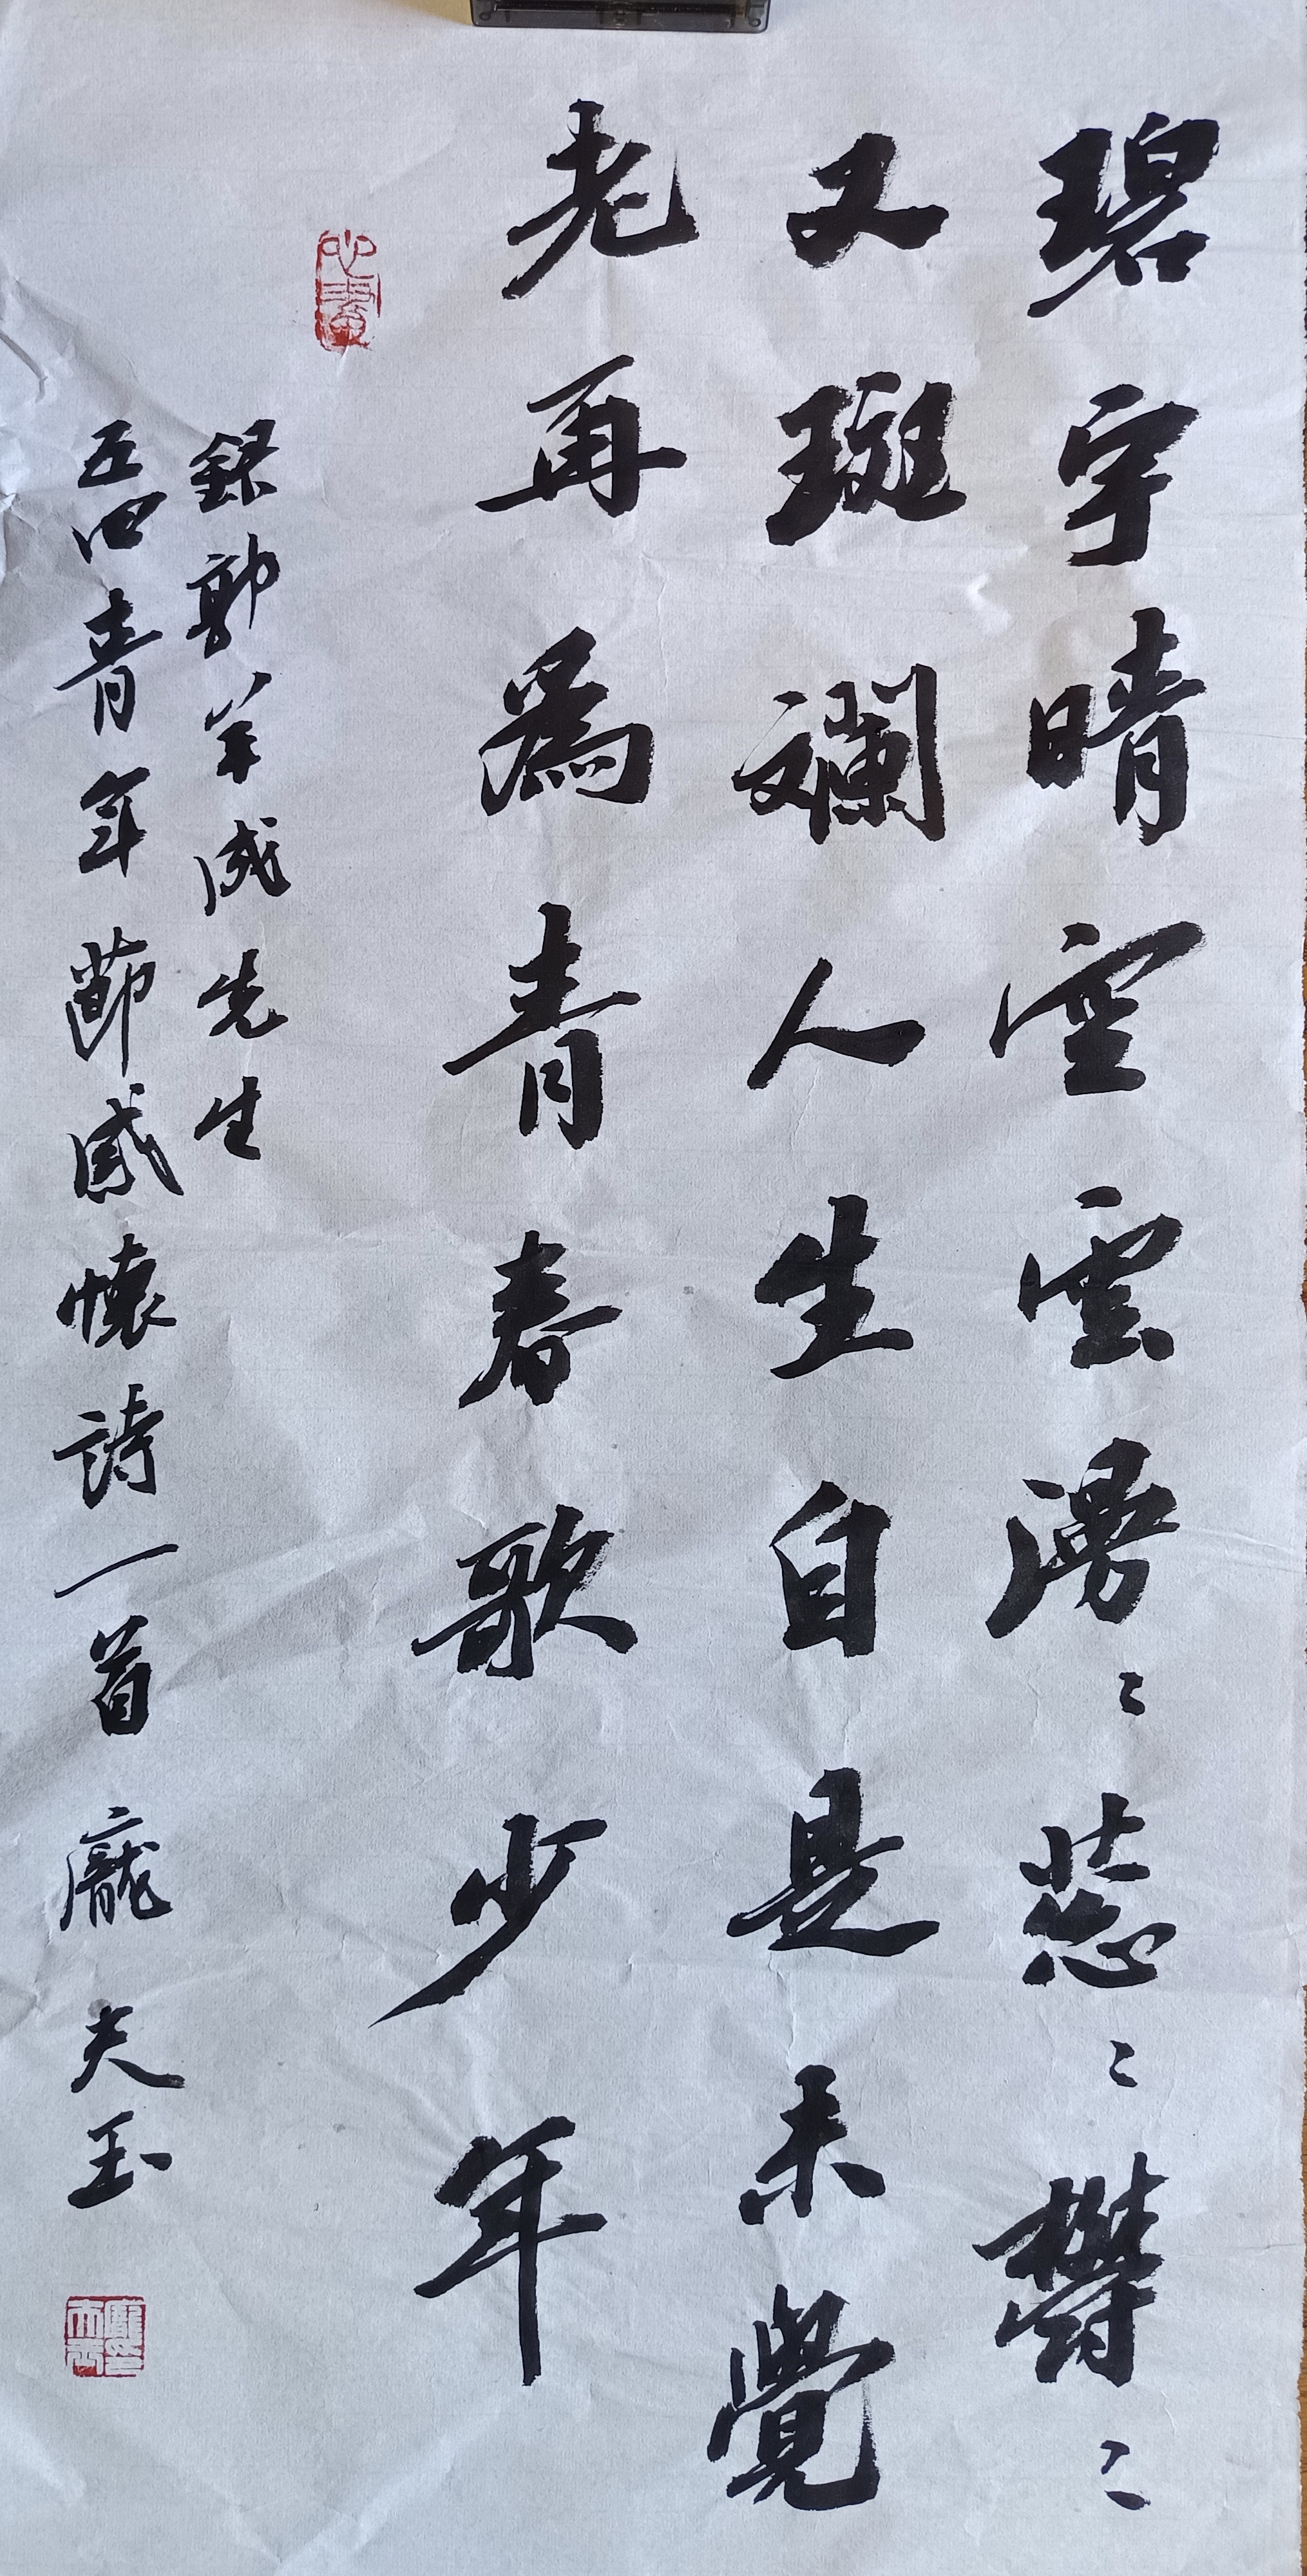 碧宇晴空雲湧〻葱〻欝〻
又斑斕人生自是未覺
老再為青春歌少年
心畫
錄郭羊成先生
五四青年節感懷詩一首 龐夫玉